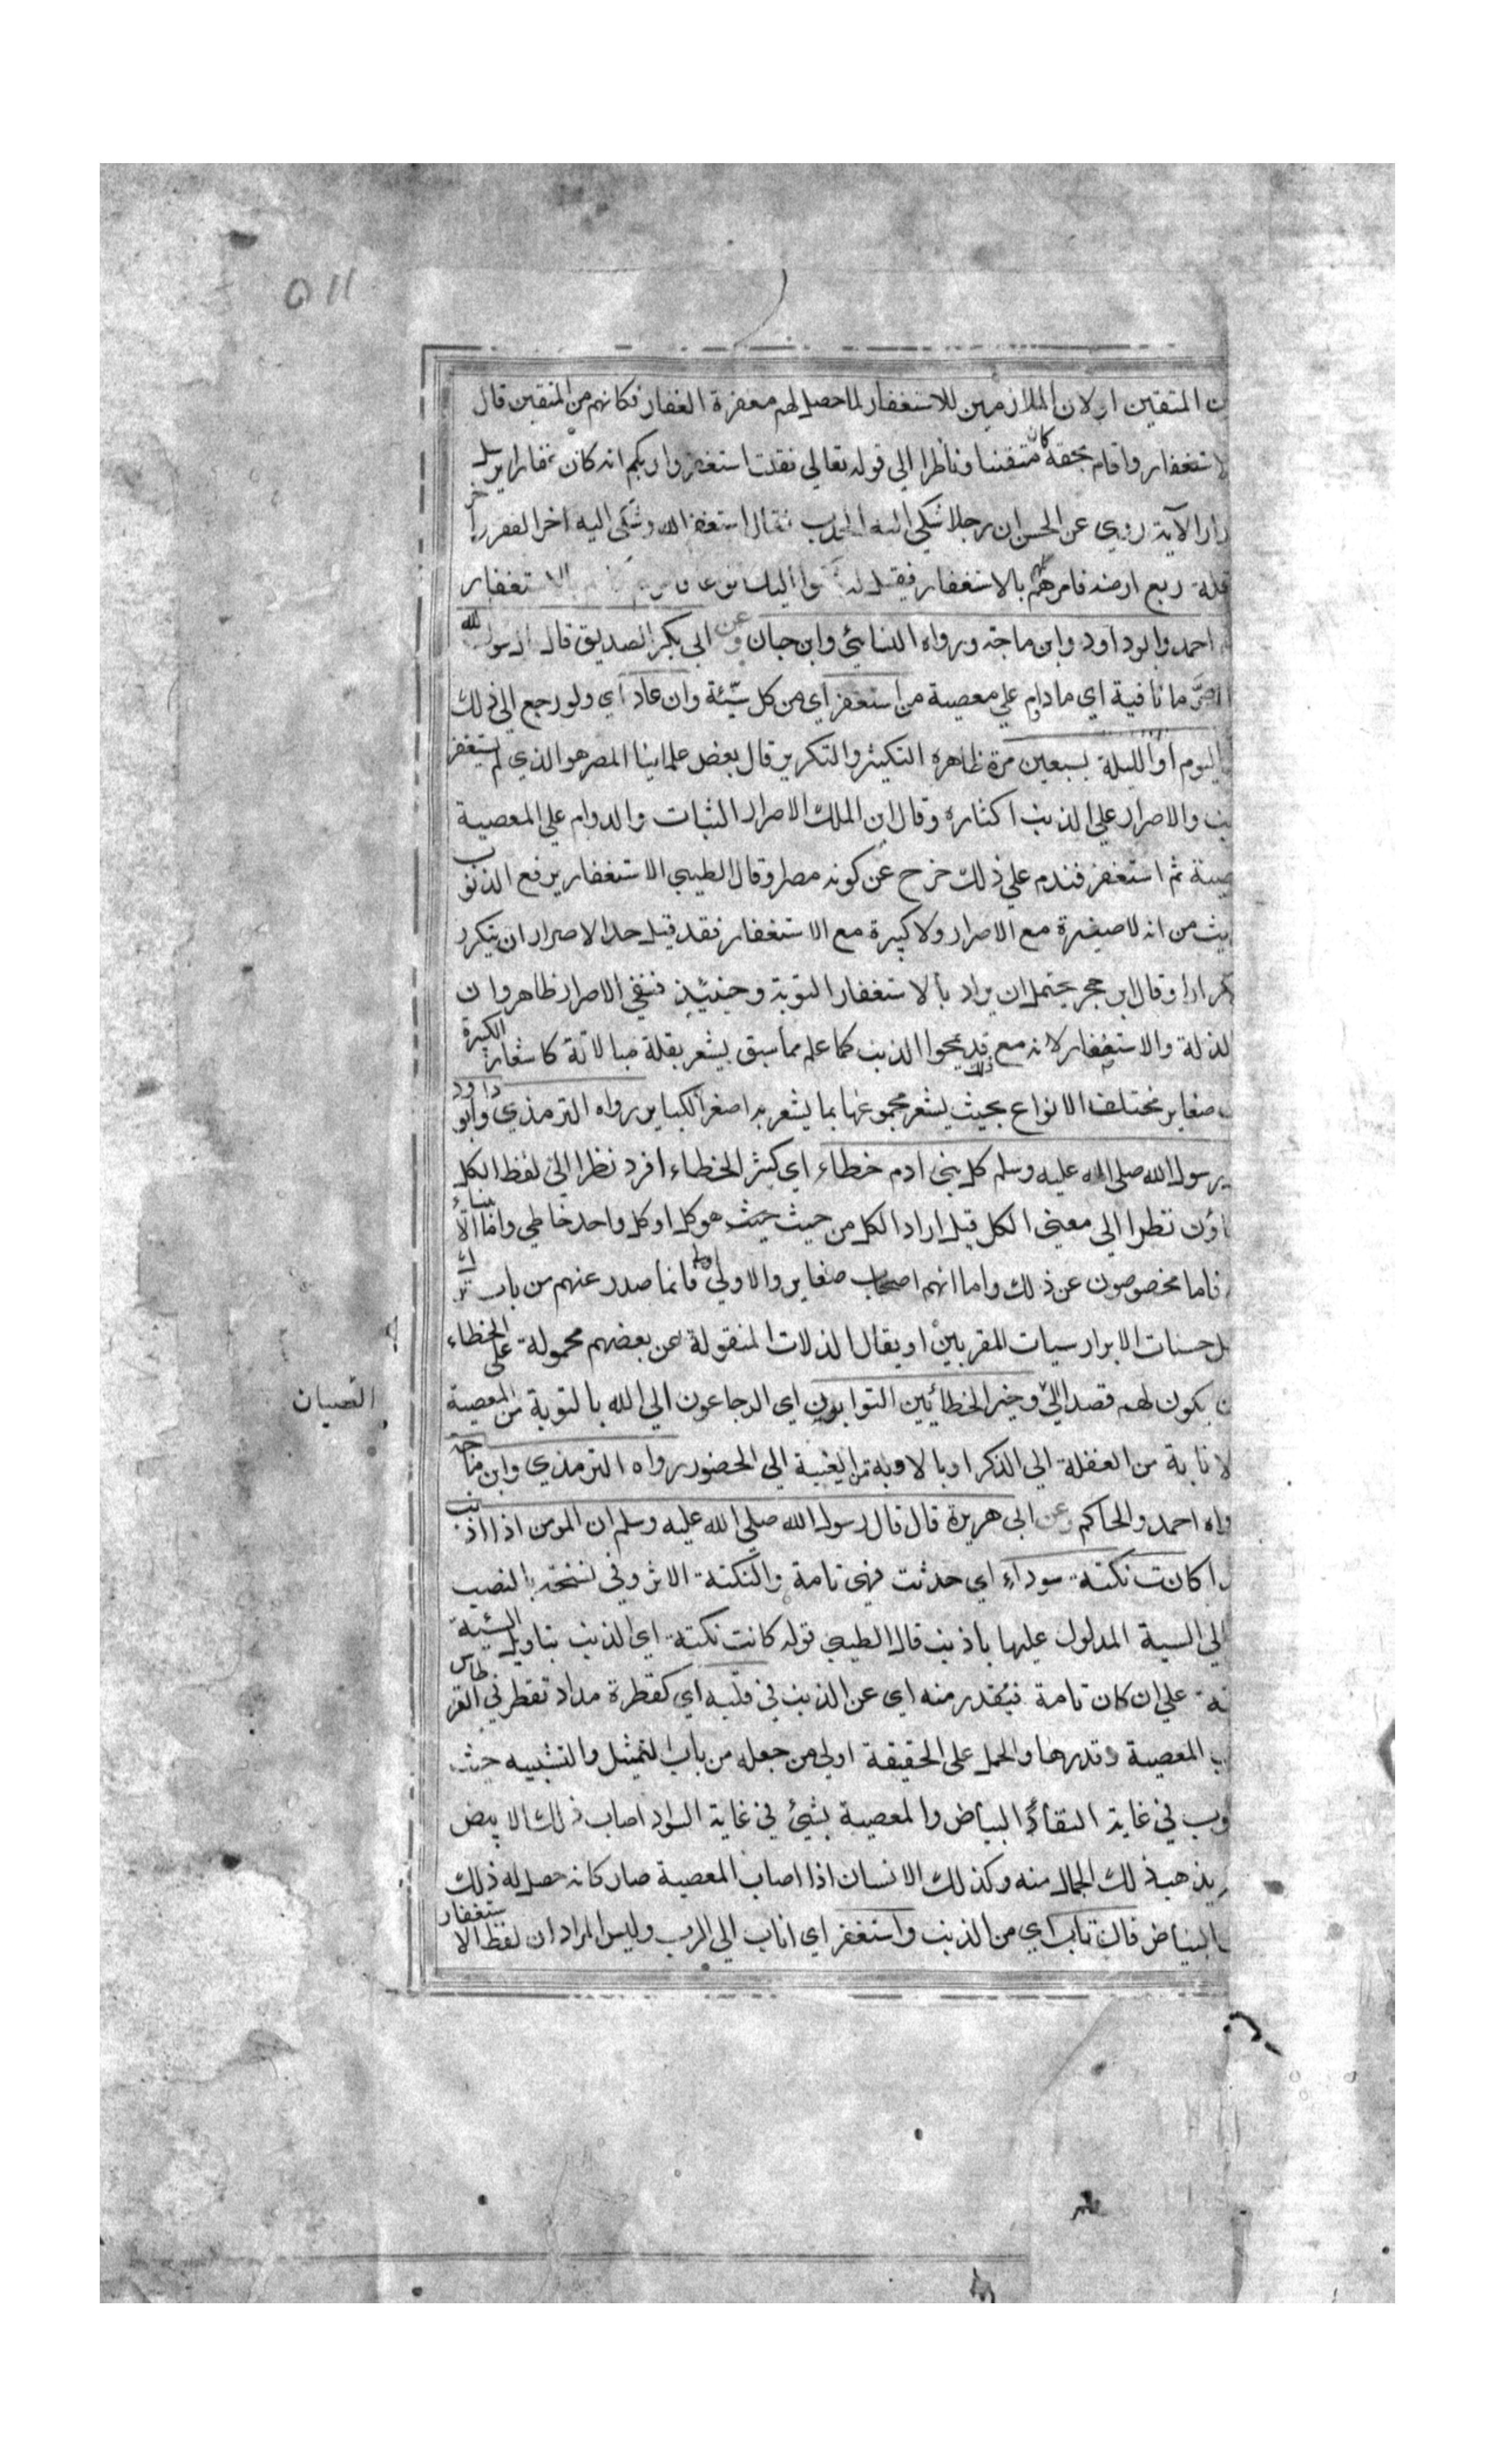 ٥١١
المتقين او لان الملازمين للاستغفار لما حصل لهم مغفرة الغفار فكانهم من المتقين قال
لاستغفار واقام بحقه كان متقننا وناظرا الي قوله تعالي فقلت استغفروا ربكم انه كان غفارا يرسل
رارا الآية روي عن الحسن ان رجلا شكي اليه الجدب فقال استغفر الله وشكي اليه اخر الفقر واخر
قلة ريع ارضه فامرهم كلهم بالاستغفار فقيل له الاستغفار
احمد وابو داود وابن ماجة ورواه النسائي وابن حبان وعن ابي بكر الصديق قال رسول الله
اصر ما نافية اي ما دام علي معصية من استغفر اي من كل سيّئة وان عاد اي ولو رجع الي ذلك
اليوم او الليلة بسبعين مرة ظاهره التكثير والتكرير قال بعض علمائنا المصر هو الذي لم يستغفر
نب والاصرار علي الذنب اكثاره وقال ابن الملك الاصرار الثبات والدوام علي المعصية
صية ثم استغفر فندم علي ذلك خرج عن كونه مصرا وقال الطيبي الاستغفار يرفع الذنوب
يث من انه لا صغيرة مع الاصرار ولا كبيرة مع الاستغفار فقد قيل حد الاصرار ان يتكرر
كرارا وقال ابن حجر يحتمل ان يراد بالاستغفار التوبة وحينئذ فنفي الاصرار ظاهر وان
لذلة والاستغفار لانه مع ذلك قد يمحوا الذنب كما علم مما سبق يشعر بقلة مبالاته كاشعار الكبيرة
صغاير مختلف الانواع بحيث يشعر مجموعها بما يشعر به اصغر الكباير رواه الترمذي وابو داود
رسول الله صلي الله عليه وسلم كل بني ادم خطاء اي كثير الخطاء افرد نظرا الي لفظ الكل
اؤن نظرا الي معني الكل قيل اراد الكل من حيث حيث هو كل او كل واحد خاطي واما الانبياء
فاما مخصوصون عن ذلك واما انهم اصحاب صغاير والاولي اولي فانما صدر عنهم من باب ترك
ل حسنات الابرار سيات المقربين او يقال الذلات المنقولة عن بعضهم محمولة علي الخطاء
ن يكون لهم قصد الي وخير الخطائين التوابون اي الرجاعون الي الله بالتوبة من المعصية
النسيان
لانابة من الغفلة الي الذكر او بالاوبة من الغيبة الي الحضور رواه الترمذي وابن ماجة
واه احمد والحاكم وعن ابي هريرة قال قال رسول الله صلي الله عليه وسلم ان المومن اذا اذنب
كانت نكتة سوداء اي حدثت فهي تامة والنكتة الاثر وفي نسخة بالنصب
الي السية المدلول عليها باذنب قال الطيبي قوله كانت نكتة اي الذنب بتاويل السيّئة
تة علي ان كان تامة فيقدر منه اي عن الذنب في قلبه اي كقطرة مداد تقطر في القرطاس
المعصية وقدرها والحمل علي الحقيقة اولي من جعله من باب التمثيل والتشبيه حيث
وب في غاية النقاء والبياض والمعصية بشيئ في غاية السواد اصاب ذلك الابيض
يذهب ذلك الجمال منه وكذلك الانسان اذا اصاب المعصية صار كانه حصل له ذلك
البياض فان تاب اي من الذنب واستغفر اي اناب الي الرب وليس المراد ان لفظ الاستغفار